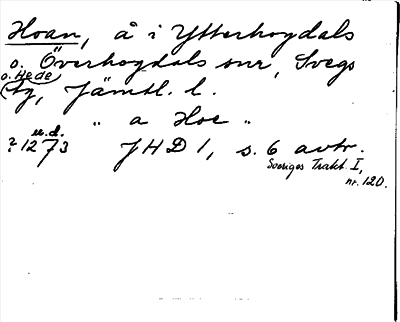 Hoan, å i Ytterhogdals
o. Överhogdals snr, Svegs
o. Hede
tg, Jämtl. l.
" a Hoe "
u.d.
? 1273 JHD 1, s. 6 avtr.
Sveriges Trakt. I,
nr. 120.